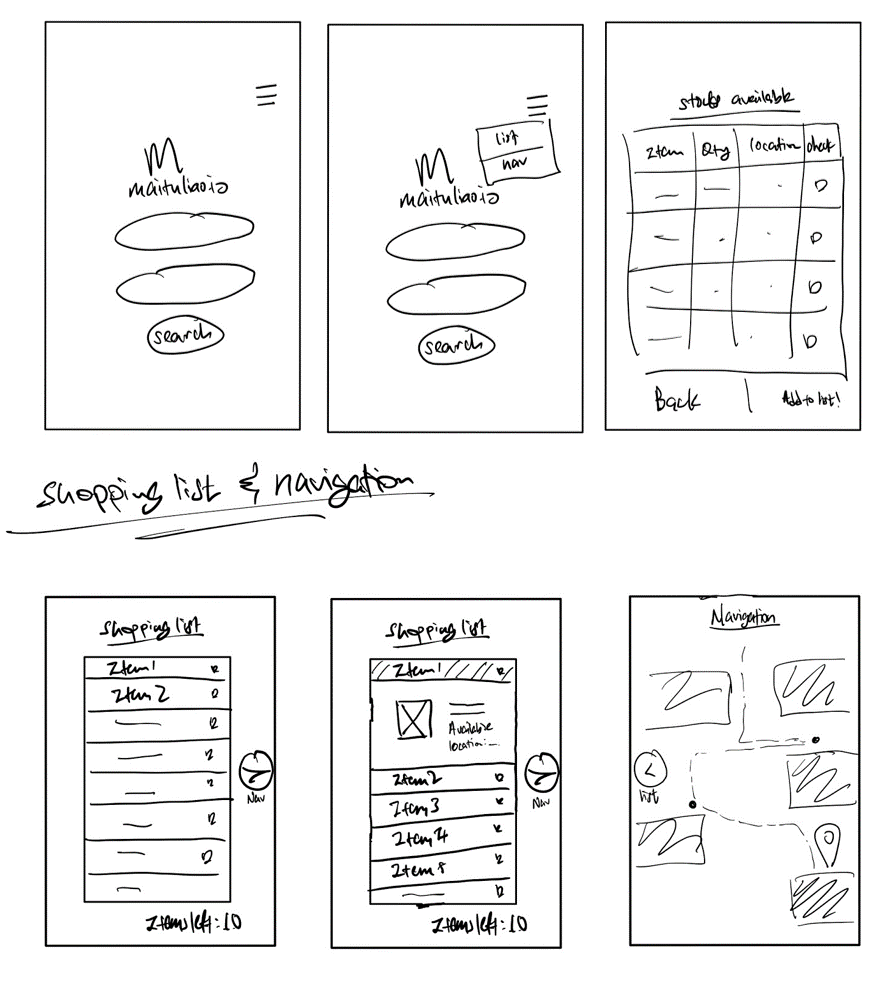 M
maituliao.io
search
list
nav
M
maituliao.io
search
stocks available
Item Qty location check
Back Add to list!
shopping list & navigation
Shopping list
Item 1
Item 2
Nav
Items left: 10
Shopping list
Item 1
Available
location:
Item 2
Item 3
Item 4
Item 5
Nav
Items left: 10
Navigation
list